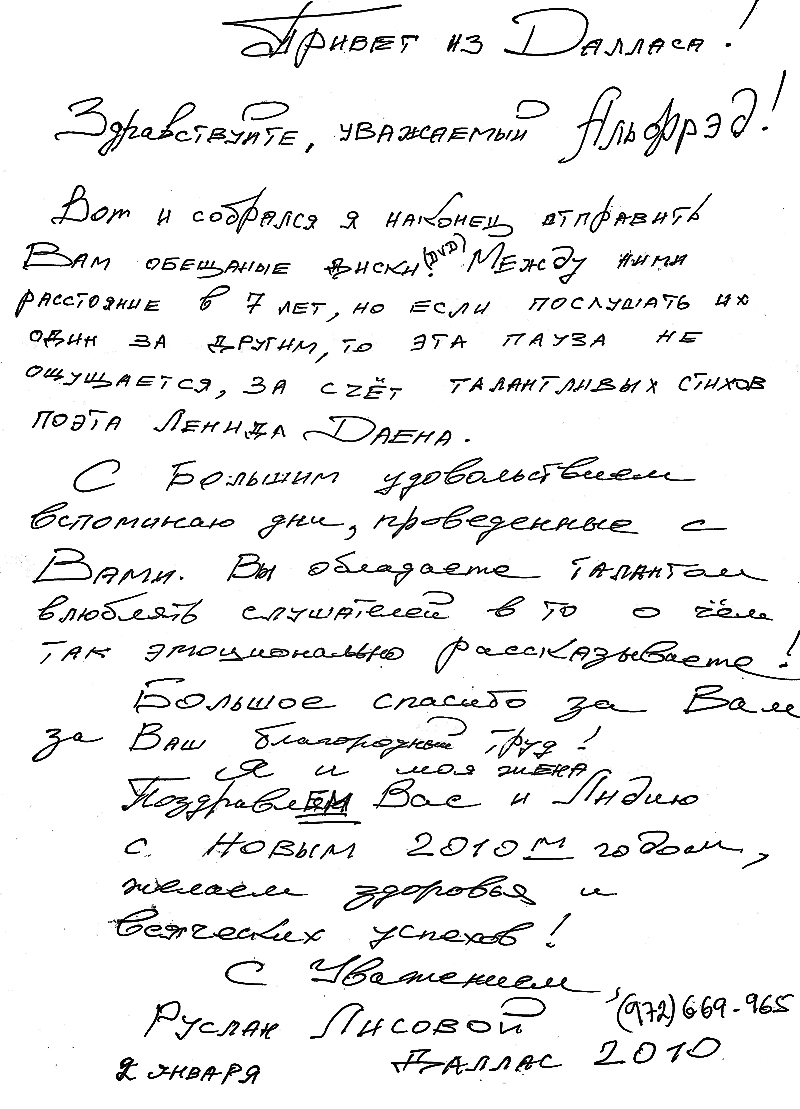 Привет из Далласа!
Здравствуйте, уважаемый Альфрэд!
Вот и собрался я наконец отправить
Вам обещаные диски (DVD). Между ними
расстояние в 7 лет, но если послушать их
один за другим, то эта пауза не
ощущается, за счёт талантливых стихов
поэта Ленида Даена.
С Большим удовольствием
вспоминаю дни, проведенные с
Вами. Вы обладаете талантом
влюблять слушателей в то о чём
так эмоционально рассказываете!
Большое спасибо за Вам
за Ваш благородный труд!
Я и моя жена
Поздравляем Вас и Лидию
с Новым 2010м годом,
желаем здоровья и
всяческих успехов!
С Уважением,
Руслан Лисовой (972) 669-965
2 января Даллас 2010